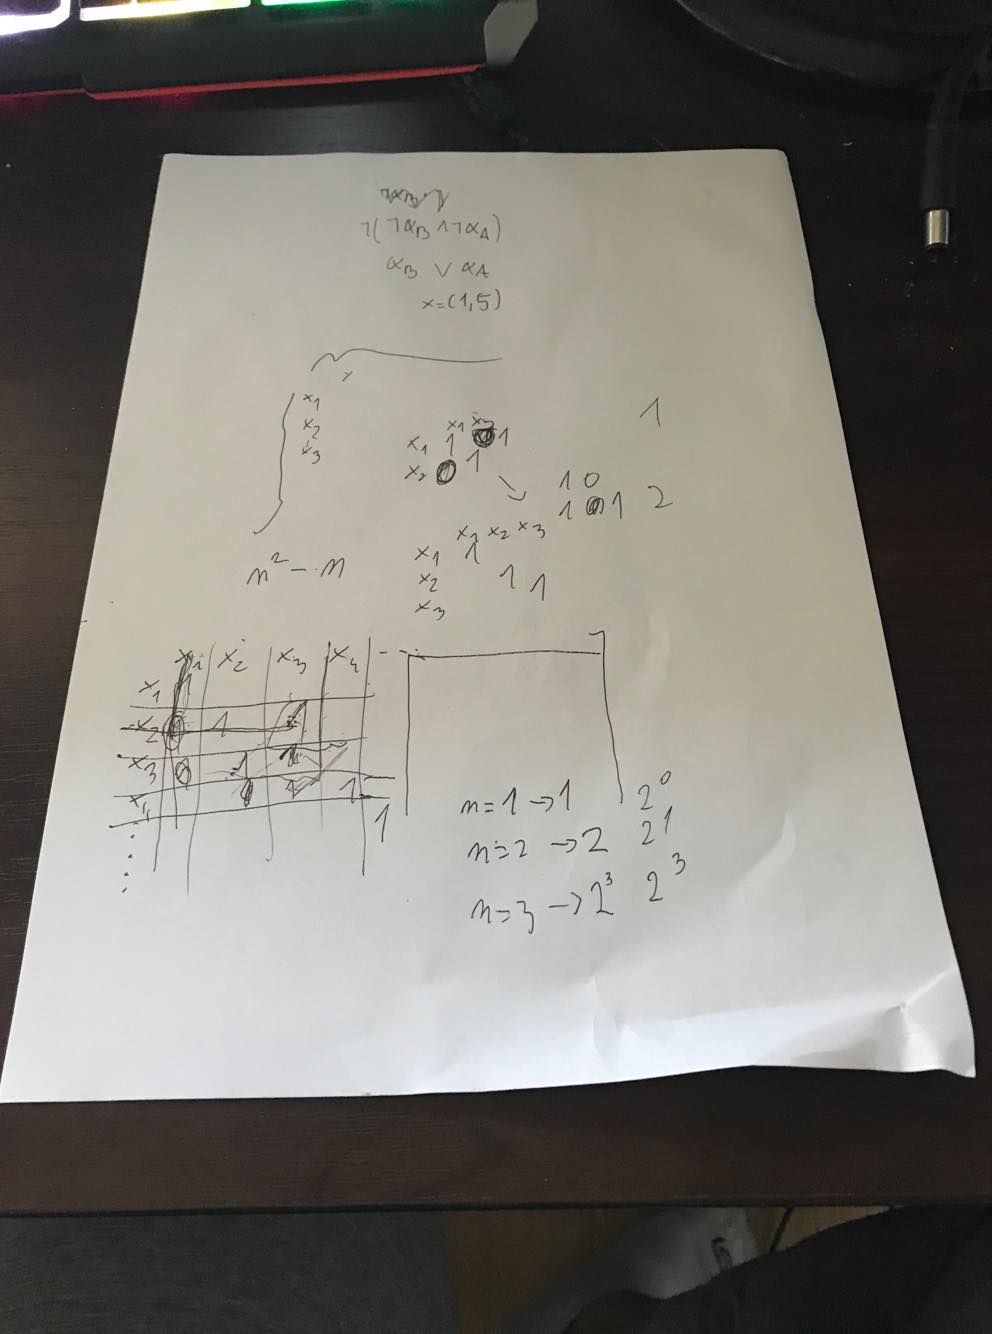 ¬(¬αB ∧ ¬αA)
αB ∨ αA
x=(1,5)
x1
x2
x3
x1
x1 1 1
x2 1
1
1 0
1 1 2
x1 x2 x3
x1 1
x2 1 1
x3
n² - n
x2 x3 x4 - - -
x1
x2 1
x3 1
1
1
n=1 → 1 2⁰
n=2 → 2 2¹
n=3 → 2³ 2³